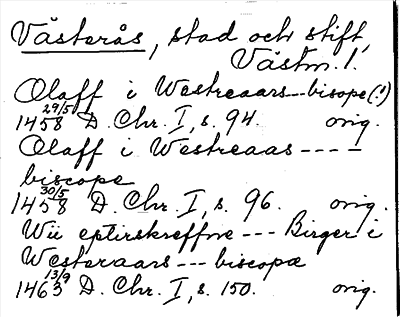 Västerås, stad och stift,
Västm. l.
Olaff i Westreaars--bisope(!)
29/5
1458 D. Chr. I, s. 94. orig.
Olaff i Westreaas ----
biscope
30/5
1458 D. Chr. I, s. 96. orig.
Wii eptirskreffne --- Birger i
Westeraars --- biscopæ
13/9
1463 D. Chr. I, s. 150. orig.